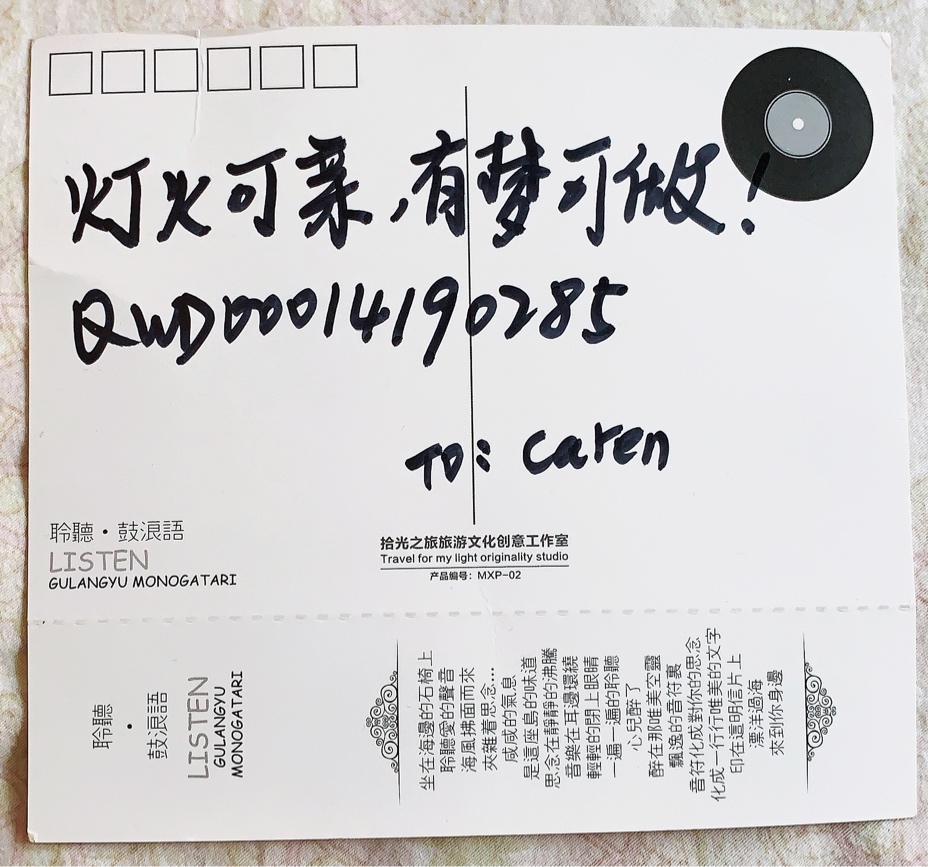 灯火可亲,有梦可做!
QWD00014190285
TO: Caren
聆聽·鼓浪語
LISTEN
GULANGYU MONOGATARI
拾光之旅旅游文化创意工作室
Travel for my light originality studio
产品编号: MXP-02
聆聽
·
鼓浪語
LISTEN
GULANGYU
MONOGATARI
坐在海邊的石椅上
聆聽愛的聲音
海風拂面而來
夾雜着思念...
咸咸的氣息
是這座島的味道
思念在靜靜的沸騰
音樂在耳邊環繞
輕輕的閉上眼睛
一遍一遍的聆聽
心兒醉了
醉在那唯美空靈
飄逸的音符裏
音符化成對你的思念
化成一行行唯美的文字
印在這明信片上
漂洋過海
來到你身邊